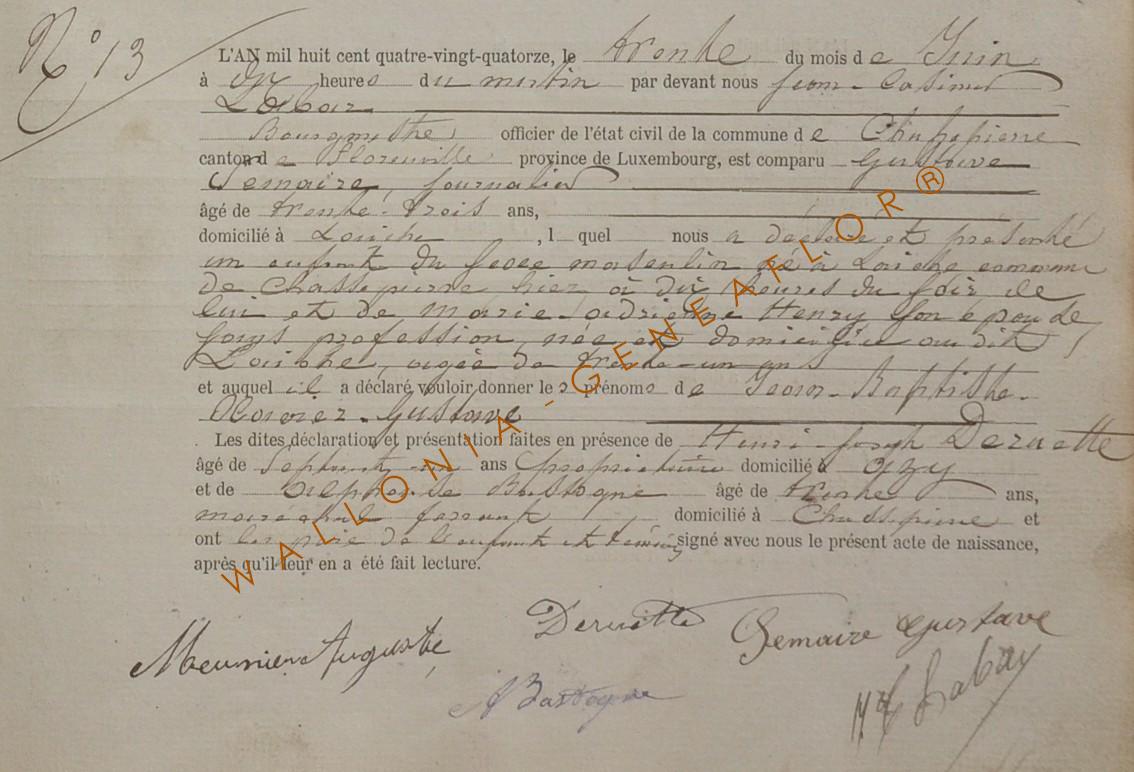 N° 13
L'AN mil huit cent quatre-vingt-quatorze, le trente du mois de Juin
à dix heures du matin par devant nous Jean-Casimir
Labar
Bourgmestre, officier de l'état civil de la commune de Chassepierre
canton de Florenville province de Luxembourg, est comparu Gustave
Semaire, journalier
âgé de trente-trois ans,
domicilié à Laiche, l quel nous a déclaré et présenté
un enfant du sexe masculin né à Laiche commune
de Chassepierre hier à dix heures du soir de
lui et de Marie-Adrienne Henry son épouse,
sans profession, née et domiciliée audit
Laiche, agée de trente-un ans
et auquel il a déclaré vouloir donner les prénoms de Jean-Baptiste-
Gustave
Les dites déclaration et présentation faites en présence de Henri-Joseph Deruette
âgé de septante ans propriétaire domicilié à Azy
et de Alphonse Bastogne âgé de trente ans,
maréchal ferrant domicilié à Chassepierre et
ont les père de l'enfant et témoins signé avec nous le présent acte de naissance,
après qu'il leur en a été fait lecture.
Deruette Semaire Gustave
Meunier Auguste
A Bastogne Labar
WALLONIA - GENEAFLOR ®